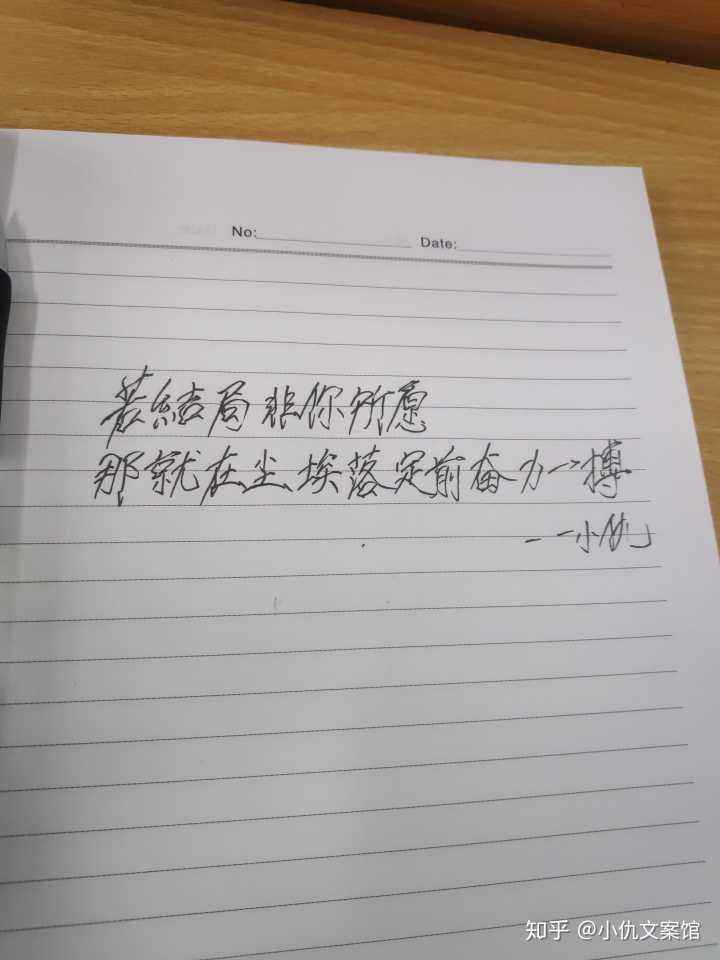 No: Date:
若结局非你所愿
那就在尘埃落定前奋力一搏
——小仇
知乎 @小仇文案馆